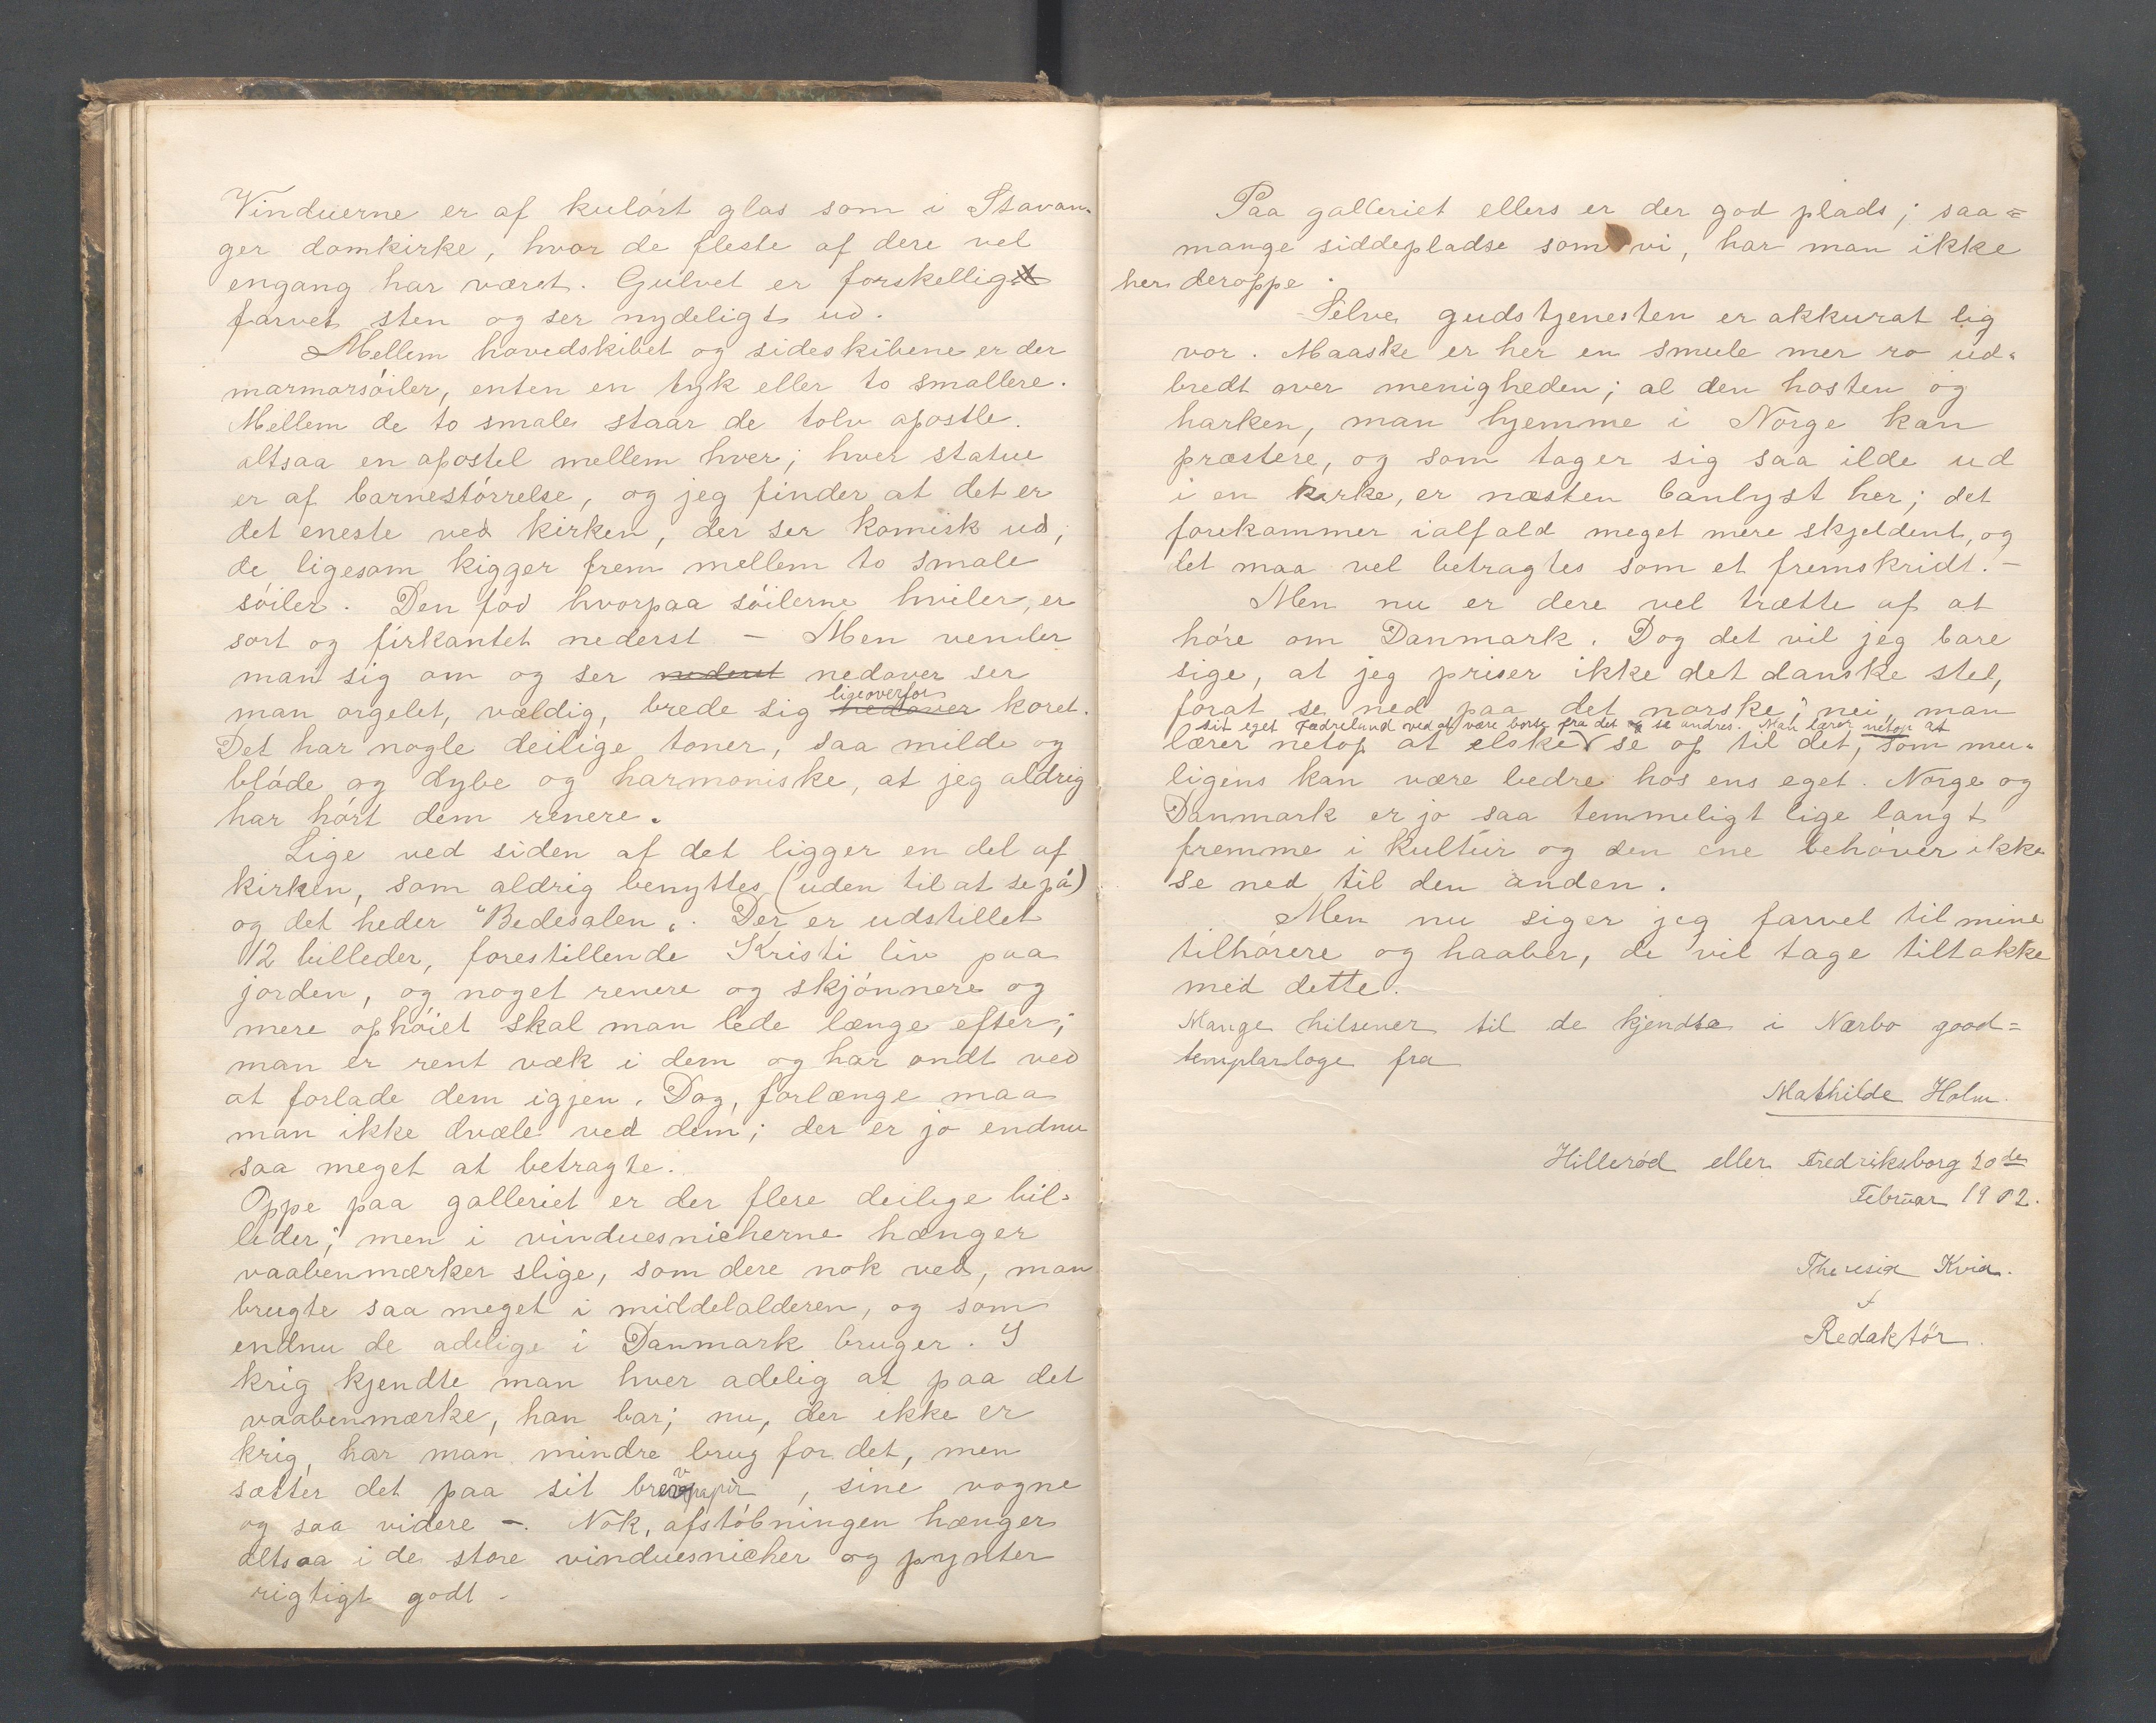 Vinduerne er af kulørt glas som i Stavan-
ger domkirke, hvor de fleste af dere vel
engang har været. Gulvet er forskellig
farvet sten og ser nydeligt ud.
Mellem hovedskibet og sideskibene er der
marmorsöiler, enten en tyk eller to smallere.
Mellem de to smale staar de tolv apostle.
altsaa en apostel mellem hver; hver statue
er af barnestörrelse, og jeg finder at det er
det eneste ved kirken, der ser komisk ud;
de ligesom kigger frem mellem to smale
söiler. Den fod hvorpaa söilerne hviler, er
sort og firkantet nederst – Men vender
man sig om og ser nederst nedover ser
man orgelet, vældig, brede sig nedover ligeoverfor koret.
Det har nogle deilige toner, saa milde og
blöde og dybe og harmoniske, at jeg aldrig
har hört dem renere.
Lige ved siden af det ligger en del af
kirken, som aldrig benyttes (uden til at se på)
og det heder "Bedesalen„. Der er udstillet
12 billeder, forestillende Kristi liv paa
jorden, og noget renere og skjönnere og
mere ophöiet skal man lede længe efter;
man er rent væk i dem og har ondt ved
at forlade dem igjen. Dog, forlænge maa
man ikke dvæle ved dem; der er jo endnu
saa meget at betragte.
Oppe paa galleriet er der flere deilige bil-
leder; men i vinduesnicherne hænger
vaabenmærker slige, som dere nok ved, man
brugte saa meget i middelalderen, og som
endnu de adelige i Danmark bruger. I
krig kjendte man hver adelig at paa det
vaabenmærke, han bar; nu, der ikke er
krig, har man mindre brug for det, men
sætter det paa sit brevpapir, sine vogne
og saa videre –. Nok, afstöbningen hænger
altsaa i de store vinduesnicher og pynter
rigtigt godt –
Paa galleriet ellers er der god plads; saa=
mange siddepladse som vi, har man ikke
her deroppe.
Selve gudstjenesten er akkurat lig
vor. Maaske er her en smule mer ro ud-
bredt over menigheden; al den hosten og
harken, man hjemme i Norge kan
præstere, og som tager sig saa ilde ud
i en kirke, er næsten banlyst her; det
forekommer ialfald meget mere skjeldent, og
det maa vel betragtes som et fremskridt. –
Men nu er dere vel trætte af at
höre om Danmark. Dog det vil jeg bare
sige, at jeg priser ikke det danske stel,
forat se ned paa det norske, nei, man
sit eget Fædreland ved at være borte fra det og se andres. Man lærer netop at
lærer netop at elske se op til det, som mu-
ligens kan være bedre hos ens eget. Norge og
Danmark er jo saa temmeligt lige langt
fremme i kultur og den ene behöver ikke
se ned til den anden.
Men nu siger jeg farvel til mine
tilhörere og haaber, de vil tage tiltakke
med dette.
Mange hilsener til de kjendte i Nærbø good=
templarloge fra
Mathilde Holm.
Hillerød eller Fredriksborg 20de
Februar 1902.
Theresia Kvia.
Redaktör.